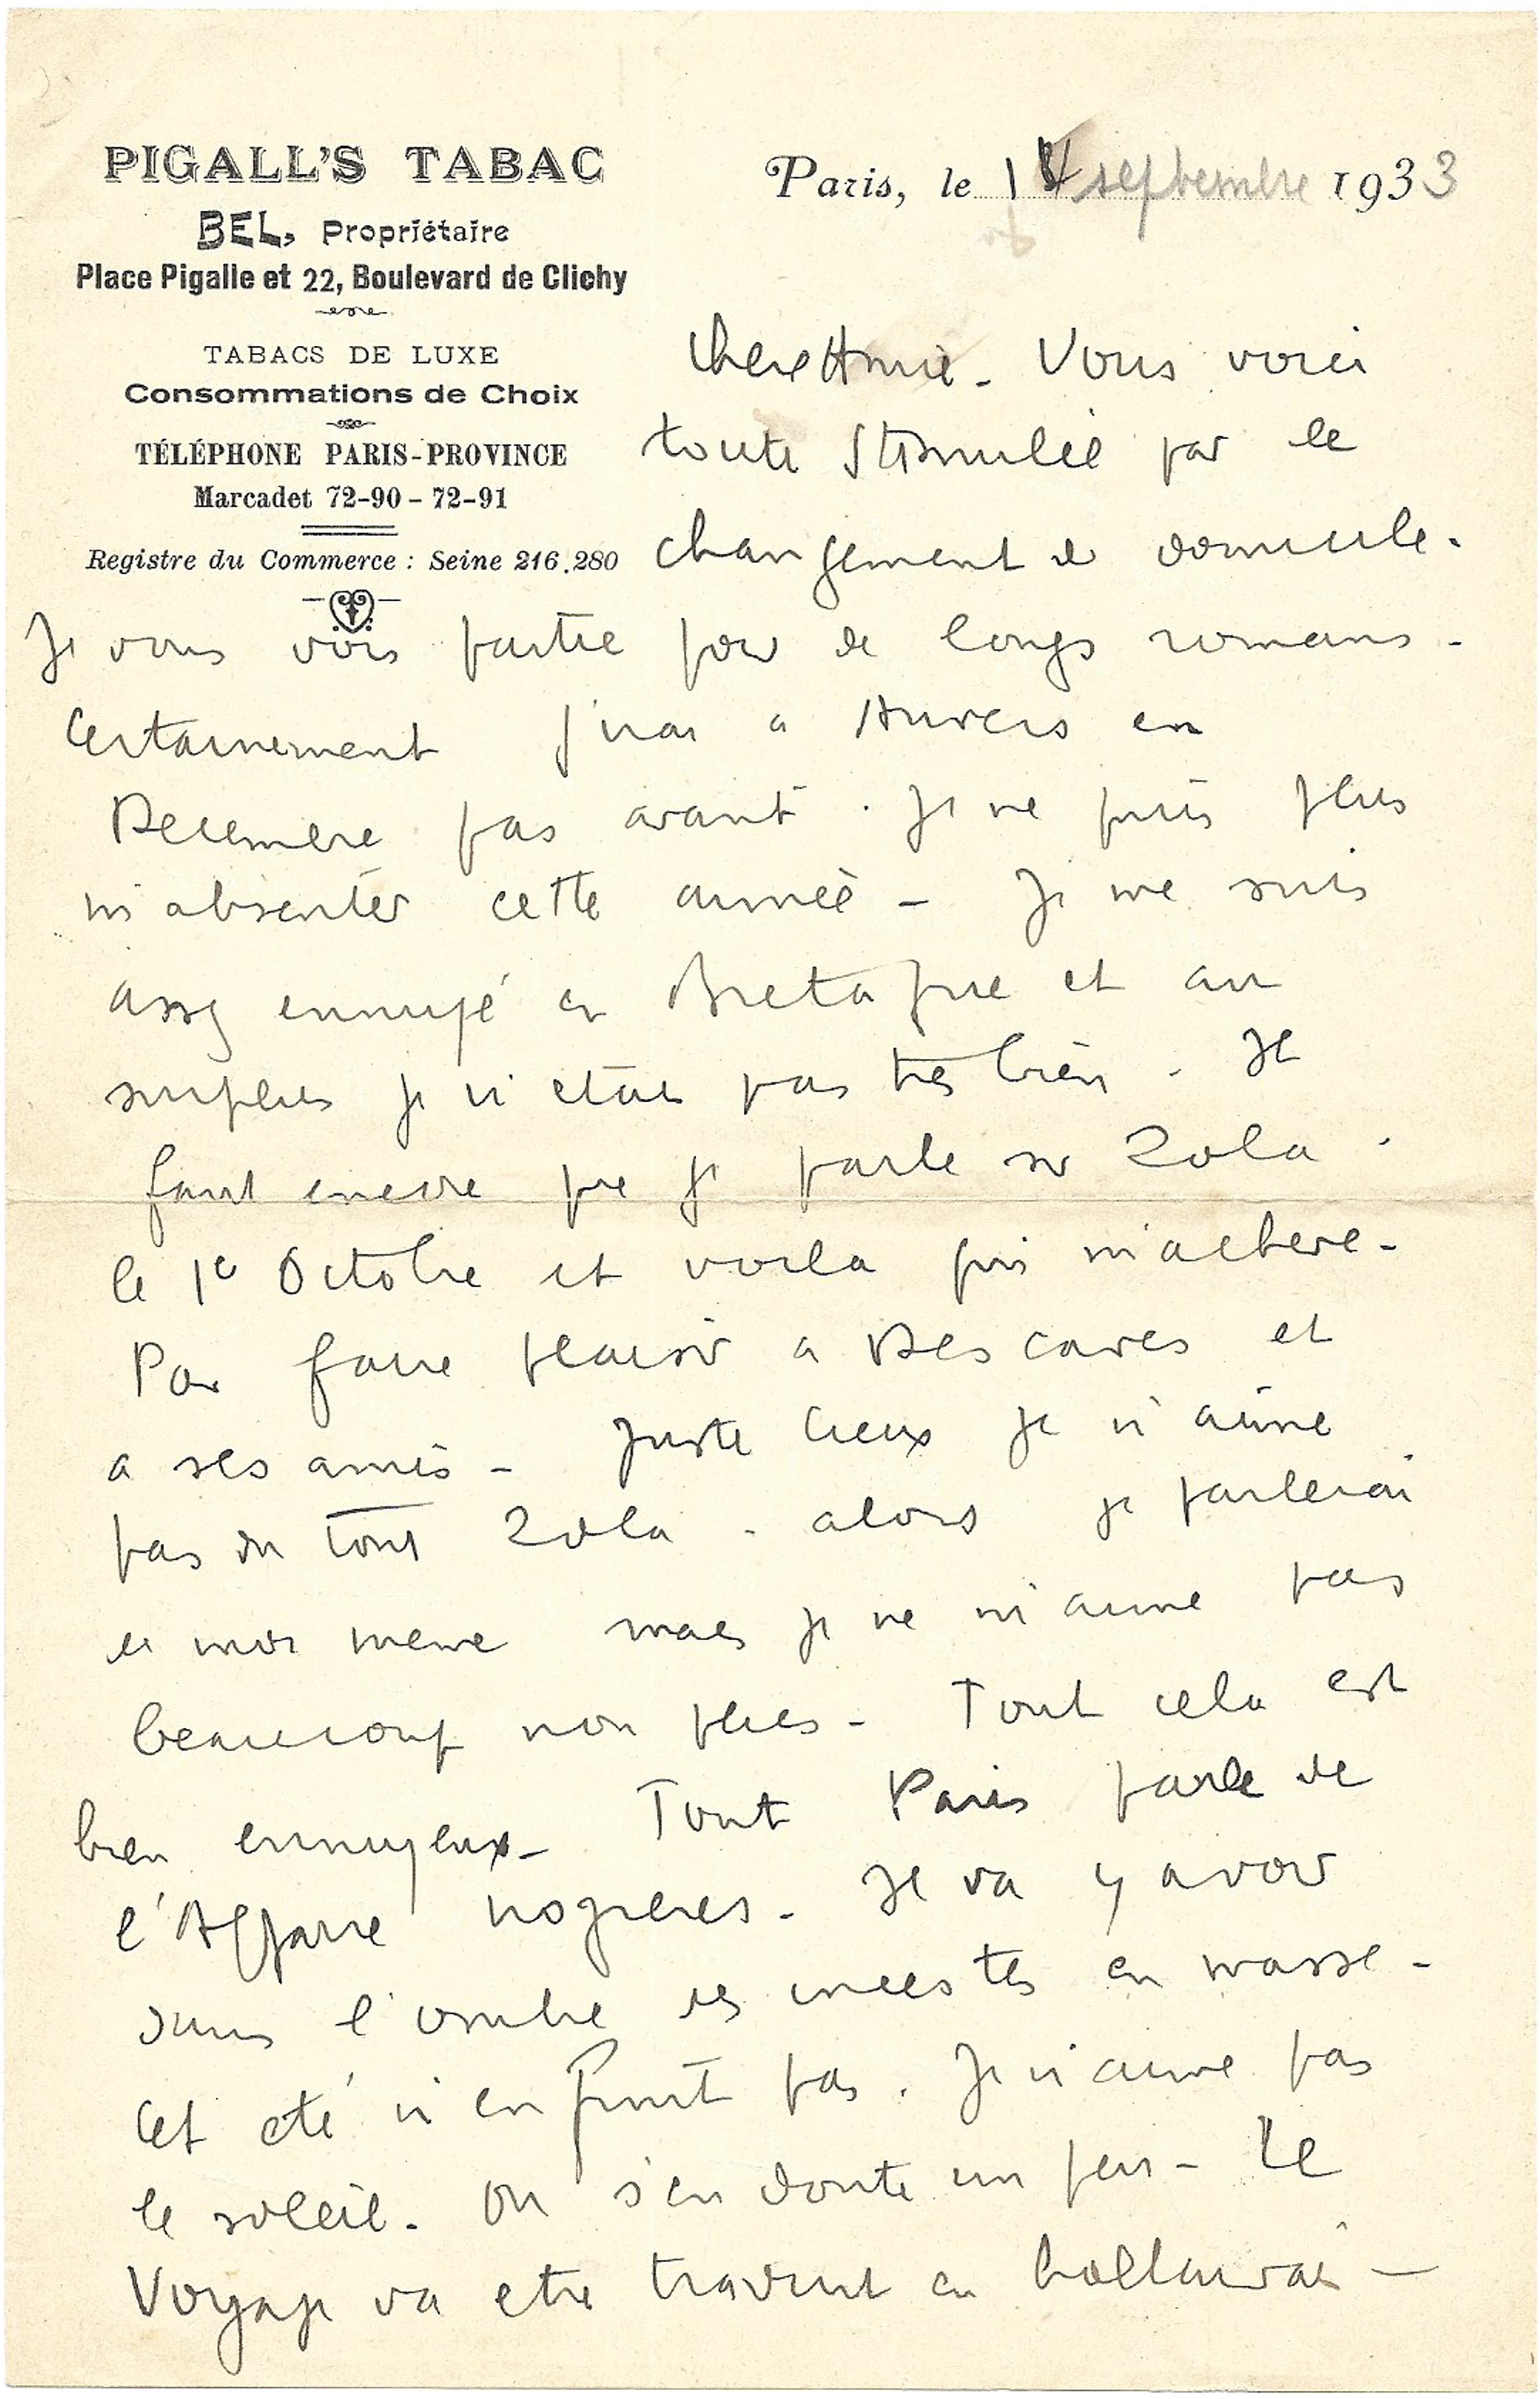 PIGALL'S TABAC
BEL, Propriétaire
Place Pigalle et 22, Boulevard de Clichy
TABACS DE LUXE
Consommations de Choix
TÉLÉPHONE PARIS-PROVINCE
Marcadet 72-90 - 72-91
Registre du Commerce : Seine 216.280
Paris, le 14 septembre 1933
Chere Amie - Vous voici
toute stimulée par le
changement de domicile.
Je vous vois partie pour de longs romans -
Certainement j'irai a Anvers en
Decembre pas avant. Je ne puis plus
m'absenter cette année - Je me suis
assez ennuyé en Bretagne et au
surplus je n'etais pas tres bien. Il
faut encore que je parle sur Zola.
le 1er Octobre et voila qui m'acheve -
Pour faire plaisir a Descaves et
a ses amis - Juste cieux je n'aime
pas du tout Zola - alors je parlerai
de moi meme mais je ne m'aime pas
beaucoup non plus - Tout cela est
bien ennuyeux - Tout Paris parle de
l'Affaire Nozieres - Il va y avoir
dans l'ombre des incestes en masse -
Cet eté n'en finit pas. Je n'aime pas
le soleil. On s'en doute un peu - Le
Voyage va etre traduit en hollandais -